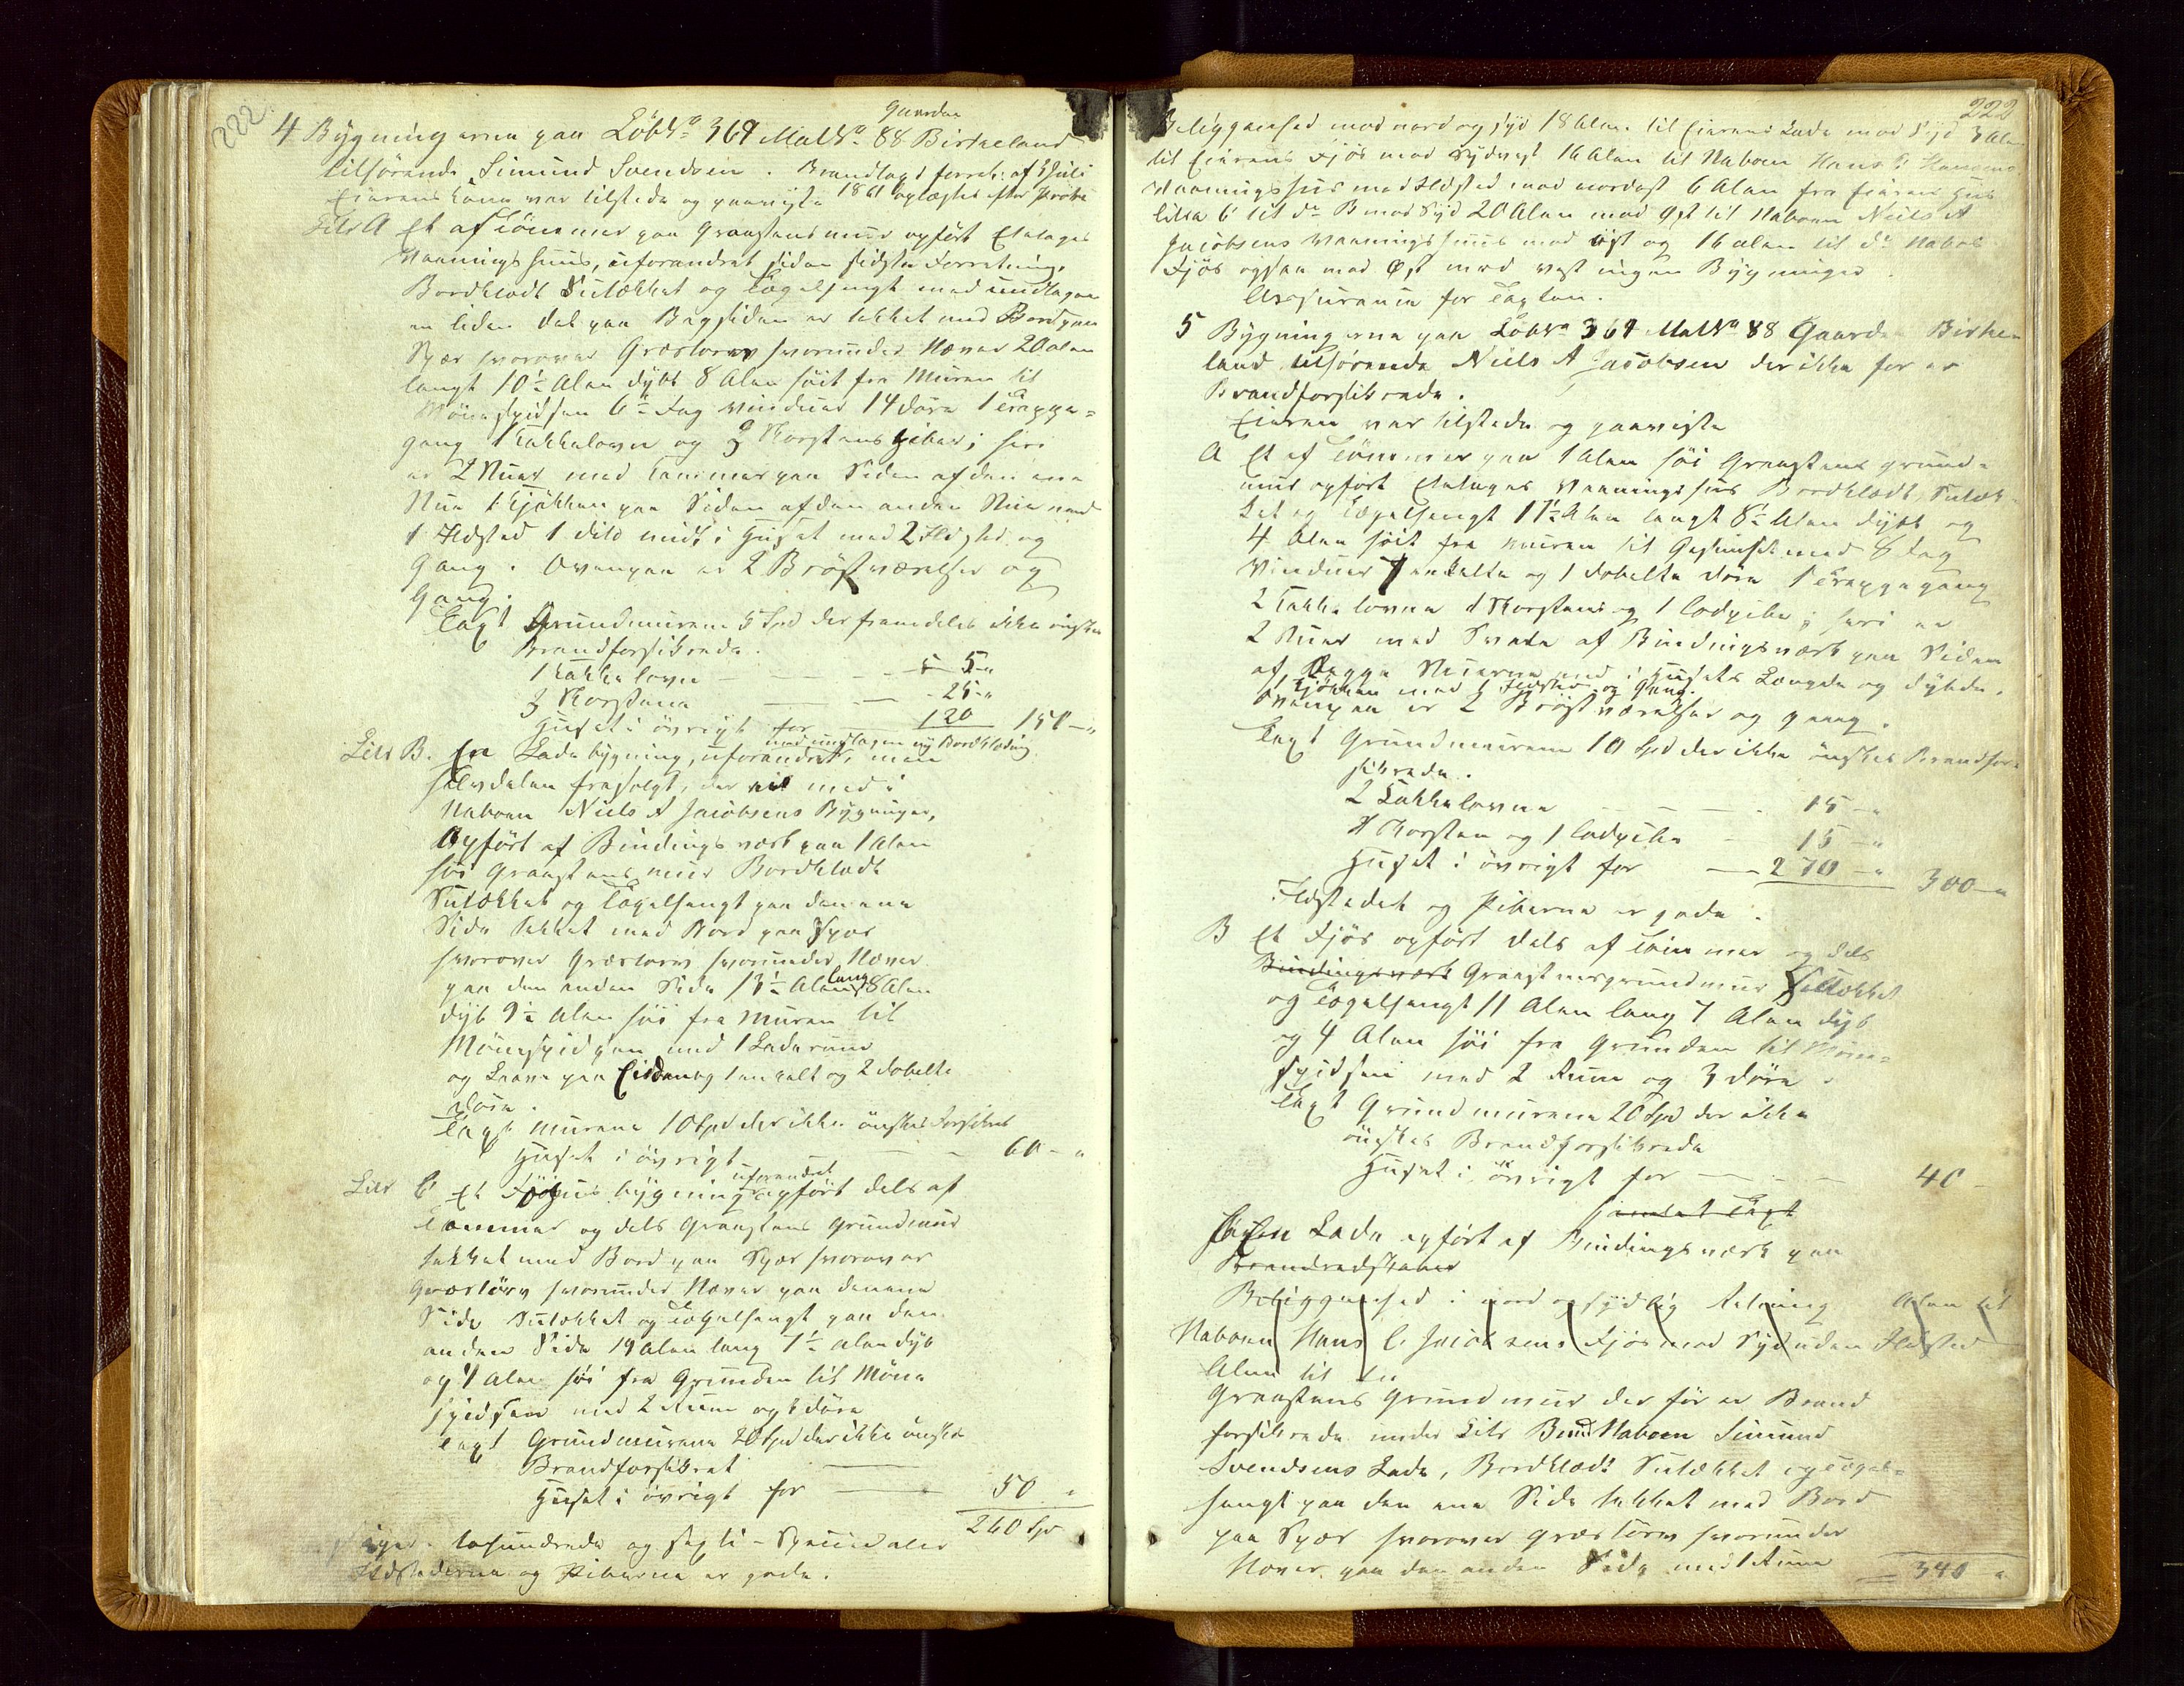 222.
4 Bygningerne paa LöbNo 369 MatNo 88 Gaarden Birkeland
tilhörende Simund Svendsen. Brandtaxt forret: af 3 Juli
Eierens Kone var tilstede og paaviste 1861 oplæstes efter Protoc
Litr A Et af Tömmer paa Graastensmuur opfört Etetages
Vaaningshuus, uforandret siden sidste Forretning,
Bordklædt Sutækket og Tegelhengt med undtagen
en liden Del paa Bagsiden er tækket med Bord paa
Spær hvorover Græstorv hvorunder Næver 20 alen
langt 10½ Alen dybt 8 Alen höit fra Muren til
Mönespidsen 6 Fag Vinduer 14 Döre 1 Trappe-
gang 1 Kakkelovn og 3 Skorstens Piber; heri
er 2 Stuer med Kammer paa Siden af den ene
Stue 1 Kjökken paa Siden af den anden Stue med
1 Ildsted 1 dito midt i Huset med 2 Ildsted og
Gang. Ovenpaa er 2 Bröstværelser og
Gang.
Taxt Grundmurene 5 Spd der fremdeles ikke önskes
Brandforsikrede.
1 Kakkelovn - - - 5 - "
3 Skorstene - - 25 - "
Huset i övrigt for 120 150 - "
Litr B. En Ladebygning, uforandret, med undtagen ny Bordklædning men
Halvdelen frasolgt, der med i
Naboen Niels A Jacobsens Bygninger,
Opfört af Bindingsværk paa 1 Alen
höi Graastensmuur Bordklædt
Sutækket og Tegelhengt paa den ene
Side Tækket med Bord paa Spær
hvorover Græstorv hvorunder Næver
paa den anden Side 13½ Alen lang 8 Alen
dyb 9½ Alen höi fra Muren til
Mönespidsen med 1 Laderum
og Laave paa Siden og 1 enkelt og 2 dobelte
Döre.
Taxt Murene 10 Spd der ikke önskes Forsikret
Huset i övrigt - - 60 - "
Litr C Et Fjöshuus bygning uforandret opfört dels af
Tömmer og dels Graastens Grundmuur
tækket med Bord paa Spær hvorover
Græstörv hvorunder Næver paa den ene
Side Sutækket og Tegelhengt paa den
anden Side 19 Alen lang 7½ Alen dyb
og 4 Alen höi fra Grunden til Möne
spidsen med 2 Rum og Döre
Taxt Grundmurene 20 Spd der ikke önskes
Brandforsikret
Huset i övrigt for - 50 "
260 Spd
tohundrede og sexti - Speciedaler
Ildstederne og Piberne er gode.
222
Beliggenhed mod nord og syd 18 Alen til Eierens Lade mod Syd 3 Alen
til Eierens Fjös mod Sydvest 16 Alen til Naboen Hans
Vaaningshuus med Ildsted mod nordost 6 Alen fra Eierens Hus
Litra C til do B mod Syd 20 Alen mod Öst til Naboen Niels A
Jacobsens Vaaningshuus mod öst og 16 alen til do Nabos
Fjös ogsaa mod Öst mod vest ingen Bygninger
Assurance for Taxten.
5 Bygningerne paa LöbNo 369 MatNo 88 Gaarden Birke-
land tilhörende Niels A Jacobsen der ikke för er
Brandforsikrede.
Eieren var tilstede og paaviste
A Et af Tömmer paa 1 Alen höi Graastens grund-
mur opfört Etetages Vaaningshuus Bordklædt, Sutæk-
ket og Tegelhengt 17½ Alen langt 8½ Alen dybt og
4 Alen höit fra muren til Gesimset med 8 Fag
Vinduer 7 enkelte og 1 dobelte Döre 1 Trappegang
2 Kakkelovne 1 Skorsten og 1 Lodpibe; heri er
2 Stuer med Svale af Bindingsværk paa Siden
af Begge Stuerne med i Husets Længde og Dybde.
1 Kjökken med 1 Ildsted og Gang.
Ovenpaa er 2 Bröstværelser og gang.
Taxt Grundmurene 10 Spd der ikke önskes Brandfor-
sikrede.
2 Kakkelovne - - - 15 - "
1 Skorsten og 1 Lodpibe - 15 - "
Huset i övrigt for - 270 - " 300 - "
Ildstedet og Piberne er gode.
B Et Fjös opfört dels af Tömmer og dels
Bindingsværk Graastensgrundmur Sutækket
og Tegelhengt 11 Alen lang 7 Alen dyb
og 4 Alen höi fra Grunden til Möne-
spidsen med 2 Rum og 3 Döre.
Taxt Grundmurene 20 Spd der ikke
önskes Brandforsikrede
Huset i övrigt for - - - 40 -
Samlet Taxt
En Lade opfört af Bindingsværk paa
Brandredskaber
Beliggenhed i nord og sydlig Retning Alen til
Naboen Hans C Jacobsens Fjös mod Syd uden Ildsted
Alen til
Graastens Grundmur der för er Brand
forsikrede under Litr B med Naboen Simund
Svendsens Lade, Bordklædt Sutækket og Tegel-
hengt paa den ene Side tækket med Bord
paa Spær hvorover Græstörv hvorunder
Næver paa den anden Side med 1 Rum
340 "